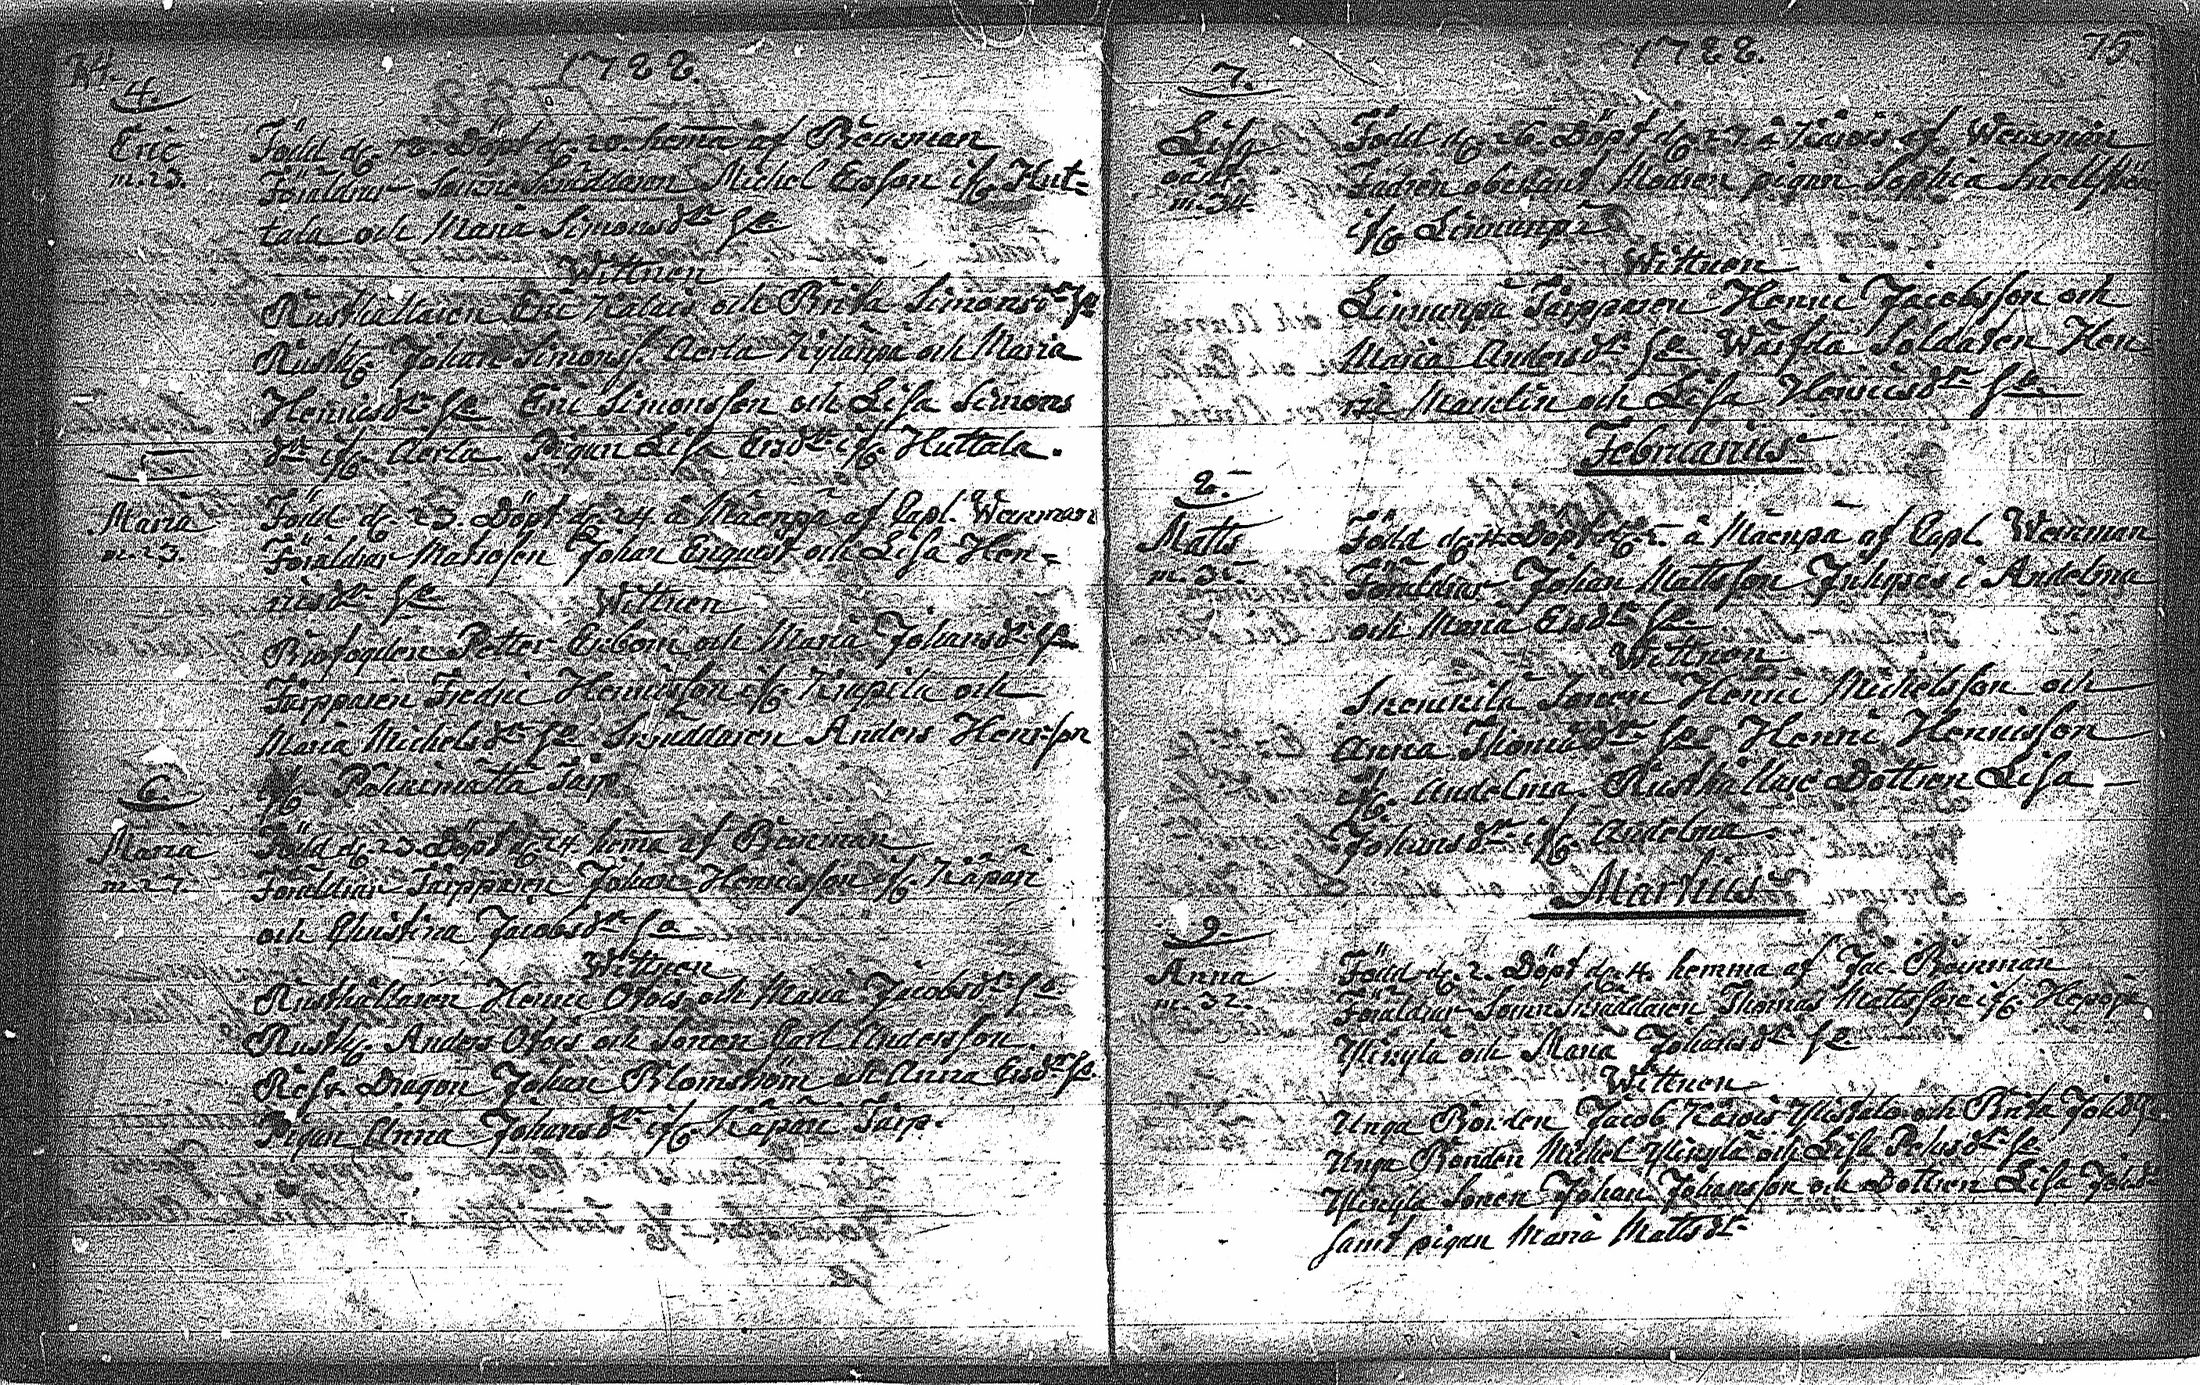 74.
1788.
4.
Eric
m. 23.
Född d. 18. Döpt d. 20. hema af Brenman
Föräldrar Sockne Skräddaren Michel Ersson ifr. Hut-
tala och Maria Simonsdr he
Wittnen
Rusthållaren Eric Kalais och Brita Simonsdr he
Rusth. Johan Simonss. Aerla Kylänpä och Maria
Henricsdr he Eric Simonsson och Lisa Simons
dr ifr. Aerla Pigan Lisa Ersdr ifr. Huttala.
5
Maria
m. 23.
Född d. 23. Döpt d. 24 à Mäenpä af Capl. Wenman
Föräldrar Matrosen Johan Enquist och Lisa Hen-
ricsdr he
Wittnen
Profogden Petter Enbom och Maria Johansdr he.
Torpparen Fredric Henricsson ifr. Knipila och
Maria Michelsdr he Skräddaren Anders Henrsson
ifr Torp
6.
Maria
m. 27.
Född d. 23. Döpt d. 24 hema af Brenman
Föräldrar Torpparen Johan Henricsson ifr. Käpäri
och Christina Jacobsdr he
Wittnen
Rusthållaren Henric Ofois och Maria Jacobsdr he
Rusth. Anders Ofois och Sonen Carl Andersson.
Res. Dragon Johan Blomström och Anna Ersdr he.
Pigan Anna Johansdr ifr Käpäri Torp.
1788.
75.
7.
Lisa
oäkt
m. 34.
Född d. 26. Döpt d. 27. à af Wenman
Fadren obekant Modren pigan Sophia Snellsten
ifr Linnunpä
Wittnen
Linnunpä Torpparen Henric Jacobsson och
Maria Andersdr he Soldaten Hen
ric Manelin och Lisa Henricsdr he.
Februarius
8.
Matts
m. 32.
Född d. 4. Döpt d. 5. à Mäenpä af Capl. Wenman
Föräldrar Johan Mattsson i Andelma
och Maria Ersdr he.
Wittnen
Sonen Henric Michelsson och
Anna Thomasdr he Henric Henricsson
ifr. Andelma Rusthållare Dottren Lisa
Johansdr ifr. Andelma.
Martius
9.
Anna
m. 32.
Född d. 2. Döpt d. 4. hemma af Jac. Brenman
Föräldrar Sockn Skräddaren Thomas Mattsson ifr.
och Maria Johansdr he
Wittnen
Unga Bonden Jacob och Brita Johdr he
Unga Bonden Michel och Lisa Pehrsdr he
Sonen Johan Johansson och Dottren Lisa Johdr
samt pigan Maria Mattsdr